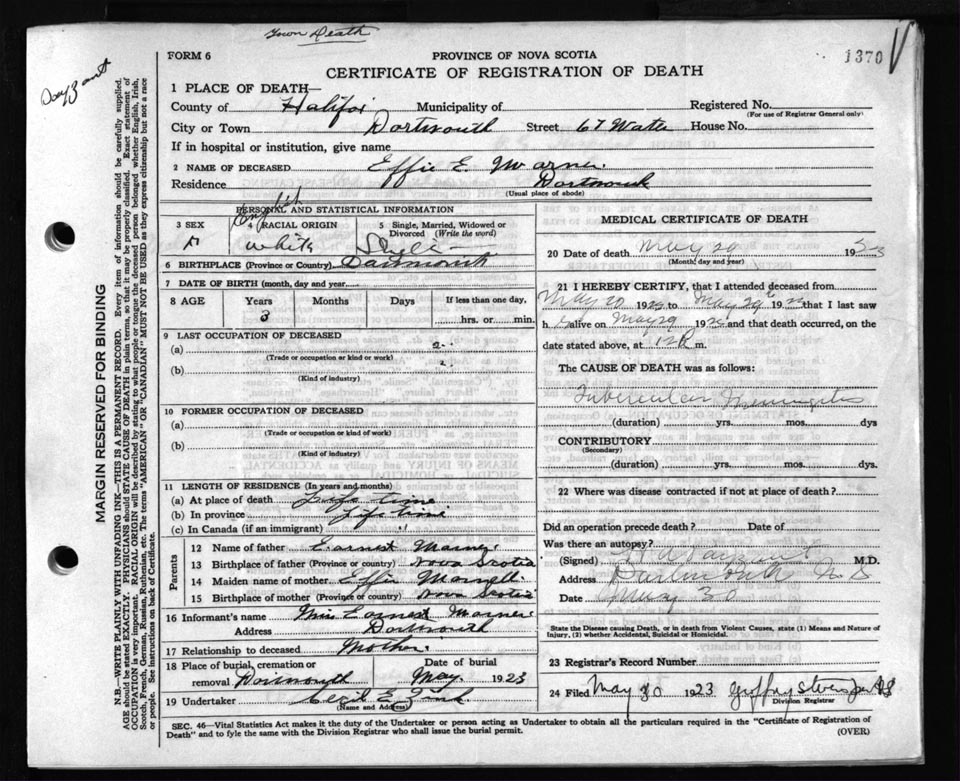 Town Death
FORM 6
PROVINCE OF NOVA SCOTIA
1370
CERTIFICATE OF REGISTRATION OF DEATH
1 PLACE OF DEATH—
County of Halifax Municipality of
Registered No.
(For use of Registrar General only)
City or Town Dartmouth Street 67 Water House No.
If in hospital or institution, give name
2 NAME OF DECEASED Effie E. Warner
Residence Dartmouth
(Usual place of abode)
PERSONAL AND STATISTICAL INFORMATION
English
3 SEX
4 RACIAL ORIGIN
white
5 Single, Married, Widowed or
Divorced (Write the word)
Single
6 BIRTHPLACE (Province or Country) Dartmouth
7 DATE OF BIRTH (month, day and year)
8 AGE Years Months Days If less than one day,
3
hrs. or min.
9 LAST OCCUPATION OF DECEASED
(a)
(Trade or occupation or kind or work)
(b)
(Kind of industry)
10 FORMER OCCUPATION OF DECEASED
(a)
(Trade or occupation or kind of work)
(b)
(Kind of industry)
11 LENGTH OF RESIDENCE (In years and months)
(a) At place of death Life time
(b) In province Life time
(c) In Canada (if an immigrant) "
Parents
12 Name of father Earnest Warner
13 Birthplace of father (Province or Country) Nova Scotia
14 Maiden name of mother Effie
15 Birthplace of mother (Province or Country) Nova Scotia
16 Informant's name Mrs Earnest Warner
Address Dartmouth
17 Relationship to deceased Mother
18 Place of burial, cremation or
removal Dartmouth
Date of burial
May 1923
19 Undertaker Cecil E. Zink
(Name and Address)
MEDICAL CERTIFICATE OF DEATH
20 Date of death May 29 1923
(Month, day and year)
21 I HEREBY CERTIFY, that I attended deceased from
May 20 192 to May 29 192 that I last saw
h alive on May 29 192 and that death occurred, on
the date stated above, at 12 m.
The CAUSE OF DEATH was as follows:
Tubercular Meningitis
(duration) yrs. mos. dys
CONTRIBUTORY
(Secondary)
(duration) yrs. mos. dys.
22 Where was disease contracted if not at place of death?
Did an operation precede death? Date of
Was there an autopsy?
(Signed) M.D.
Address Dartmouth N S
Date May 30
State the Disease causing Death, or in death from Violent Causes, state (1) Means and Nature of
Injury, (2) whether Accidental, Suicidal or Homicidal.
23 Registrar's Record Number
24 Filed May 30 1923
Division Registrar
SEC. 46—Vital Statistics Act makes it the duty of the Undertaker or person acting as Undertaker to obtain all the particulars required in the "Certificate of Registration of
Death" and to fyle the same with the Division Registrar who shall issue the burial permit.
(OVER)
MARGIN RESERVED FOR BINDING
N.B.—WRITE PLAINLY WITH UNFADING INK—THIS IS A PERMANENT RECORD. Every item of information should be carefully supplied.
AGE should be stated EXACTLY. PHYSICIANS should STATE CAUSE OF DEATH in plain terms, so that it may be properly classified. Exact statement of
OCCUPATION is very important. RACIAL ORIGIN will be described by stating to what people or tongue the deceased person belonged whether English, Irish,
Scotch, French, German, Russian, Ruthenian, etc. The terms "AMERICAN" OR "CANADIAN" MUST NOT BE USED as they express citizenship but not a race
or people. See instructions on back of Certificate.